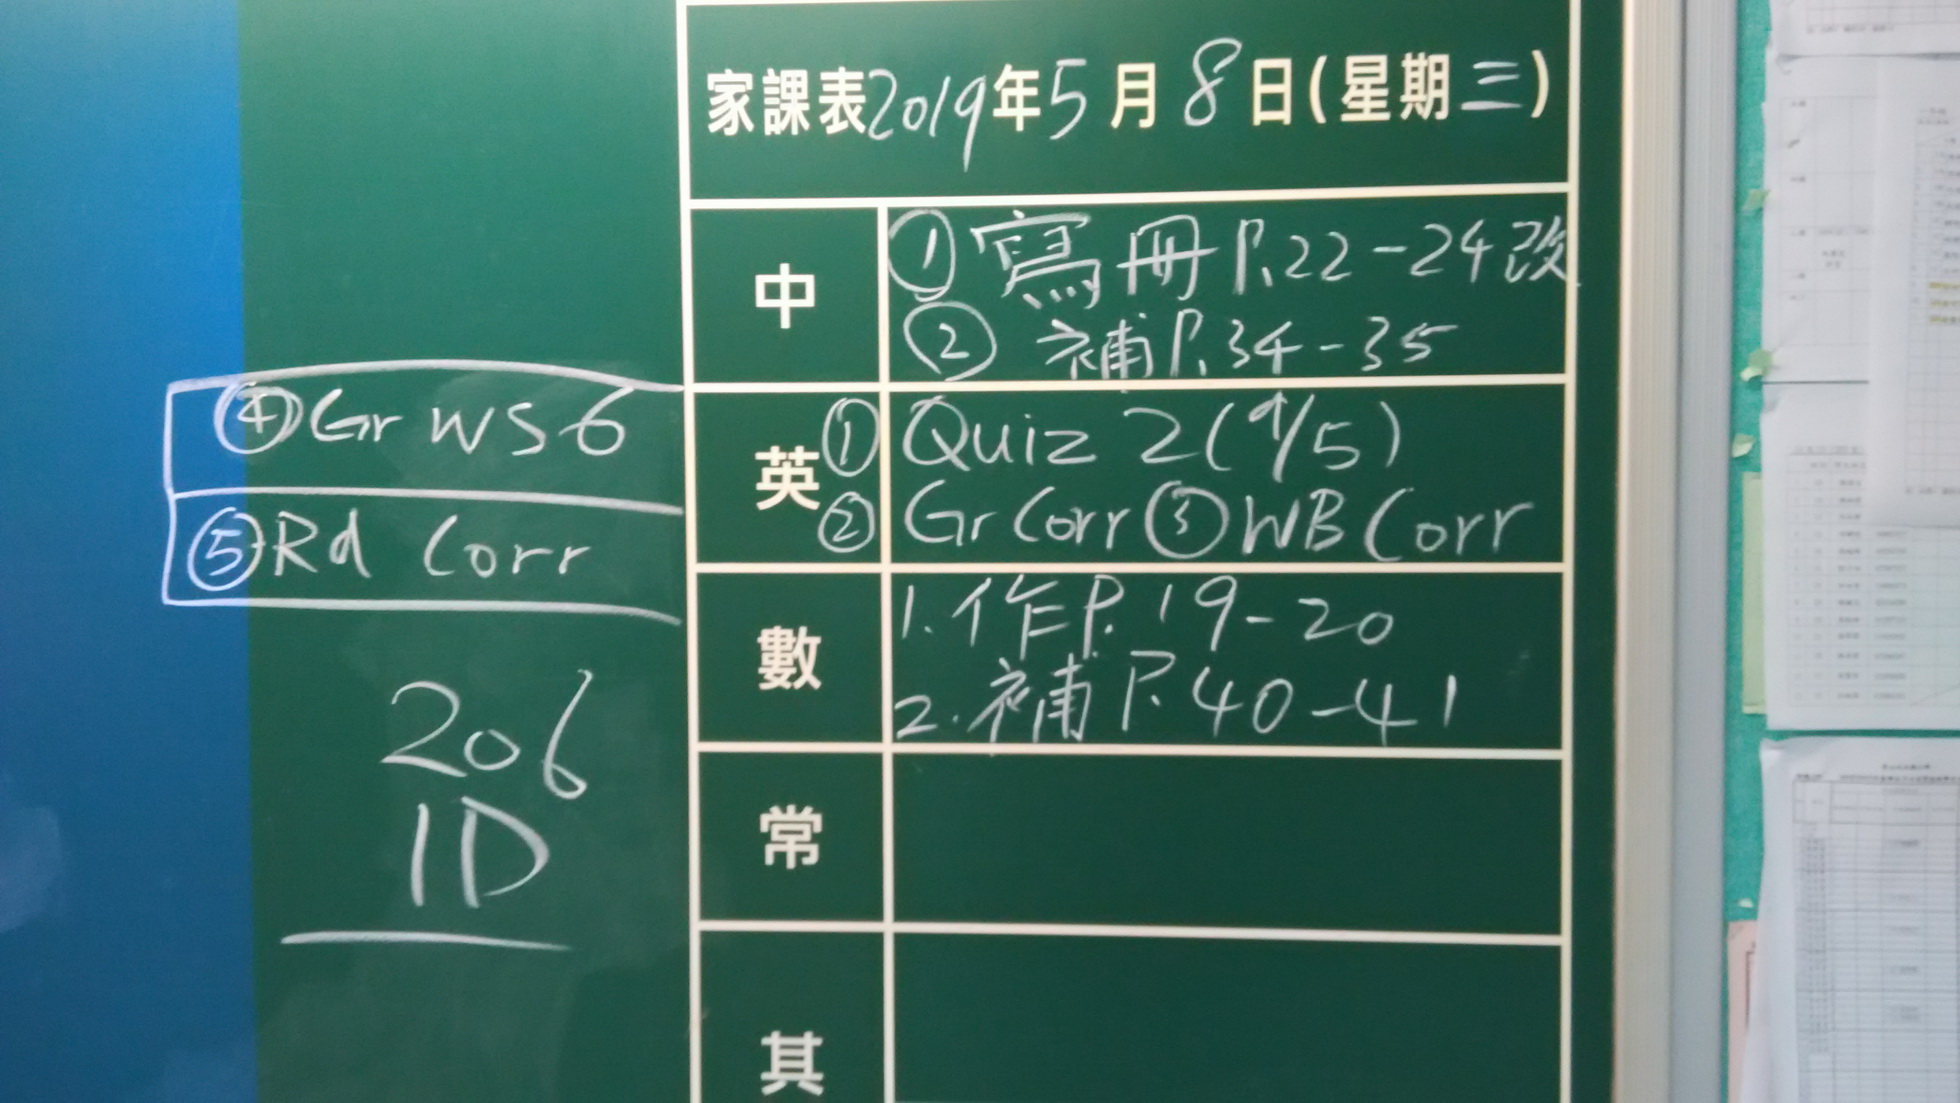 家課表2019年5月8日(星期三)
中
① 寫冊 P.22-24改
② 補 P.34-35
英
① Quiz 2 (9/5)
② Gr Corr ③ WB Corr
④ Gr WS 6
⑤ Rd Corr
數
1. 作 P.19-20
2. 補 P.40-41
常
其
206
1D